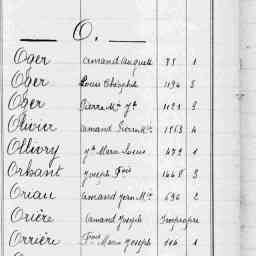 O.
Oger Amand Auguste 75 1
Oger Louis Théophile 1194 3
Oger Pierre Mie Jh 1121 3
Olivier Amand Pierre Mie 1563 4
Ollivry Jh Marie Louis 479 1
Orhant Joseph Fois 1468 3
Oriau Amand Jean Mie 694 2
Orière Amand Joseph Impropre
Orrière Fois Marie Joseph 114 1